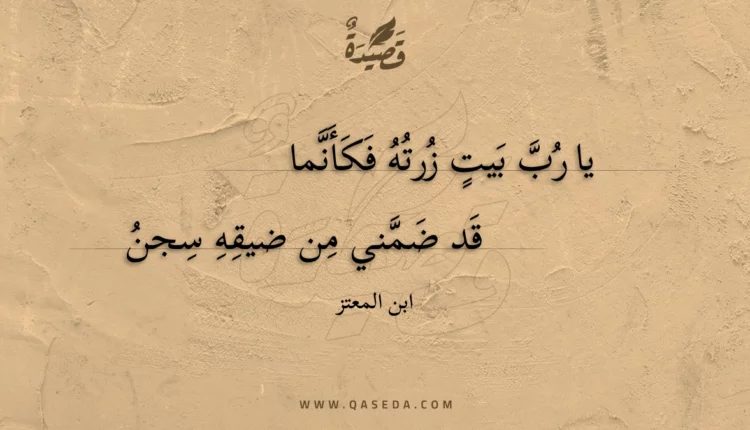 قَصِيدَةٌ
يا رُبَّ بَيتٍ زُرتُهُ فَكَأَنَّما
قَد ضَمَّني مِن ضيقِهِ سِجنُ
ابن المعتز
WWW.QASEDA.COM